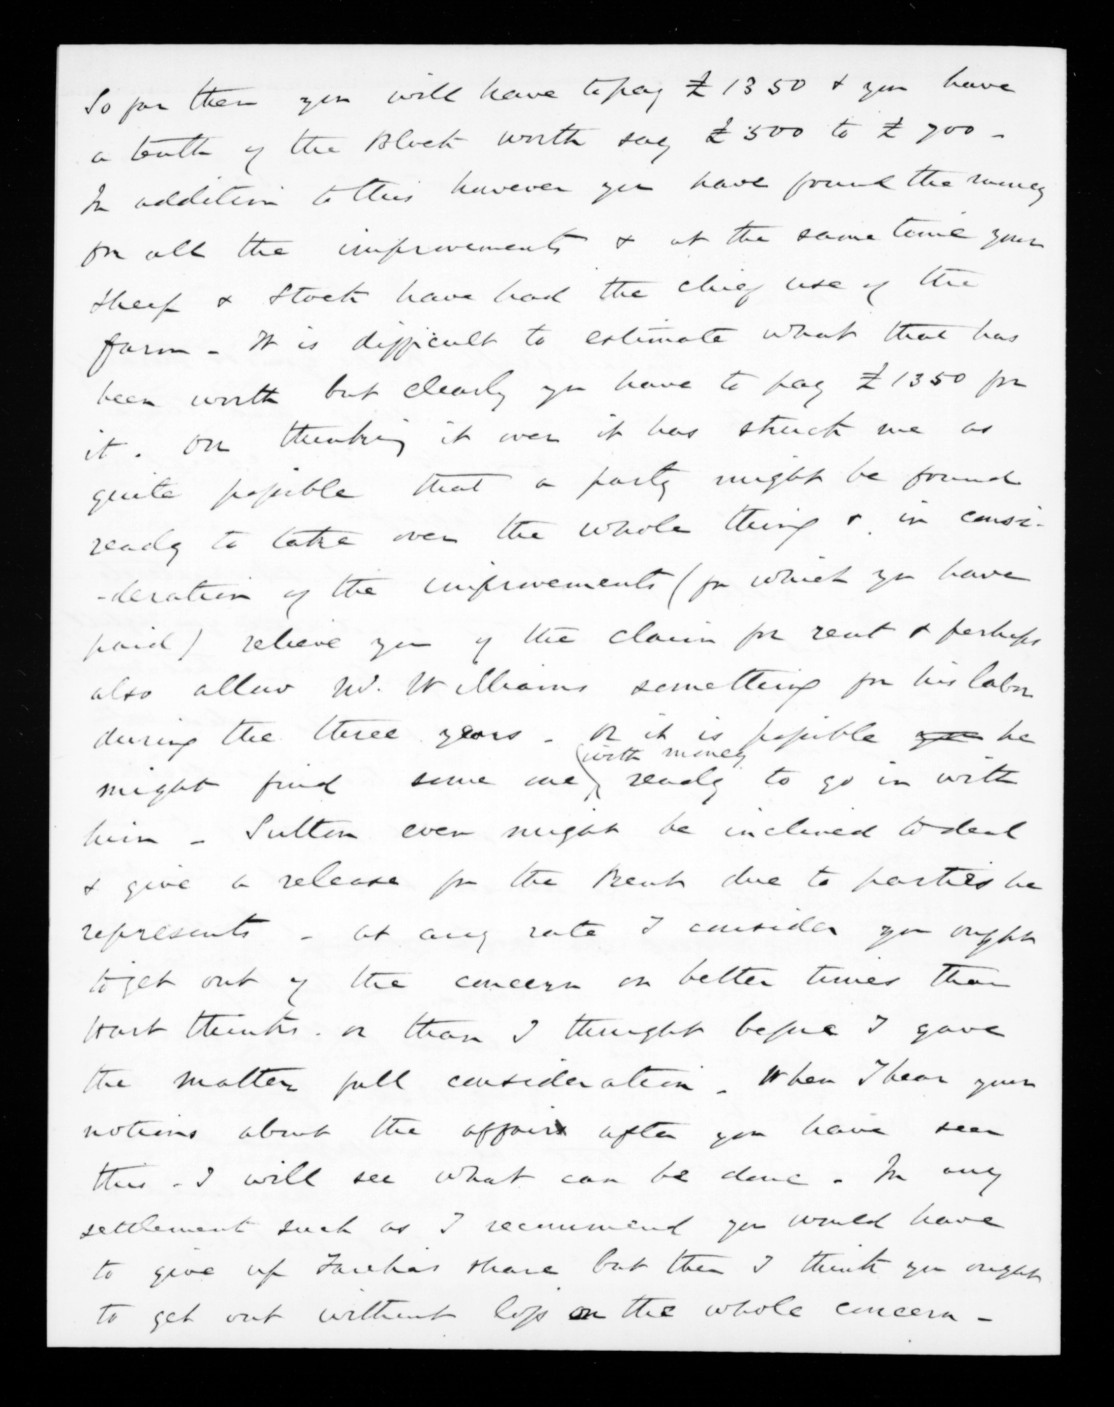 So far then you will have to pay £1350 & you have
a tenth of the Block worth say £500 to £700 -
In addition to this however you have found the money
for all the improvements & at the same time your
sheep & Stock have had the chief use of the
farm - It is difficult to estimate what that has
been worth but clearly you have to pay £1350 for
it. On thinking it over it has struck me as
quite possible that a party might be found
ready to take over the whole thing & in consi-
-deration of the improvements (for which you have
paid) relieve you of the claim for rent & perhaps
also allow W. Williams something for his labor
during the three years - Or it is possible you he
might find some one (with money) ready to go in with
him - Sutton even might be inclined to deal
& give a release for the Rent due to parties he
represents - at any rate I consider you ought
to get out of the concern on better times than
Hart thinks. or than I thought before I gave
the matter full consideration - When I hear your
notions about the affair after you have seen
this - I will see what can be done - In any
settlement such as I recommend you would have
to give up share but then I think you ought
to get out without loss on the whole concern -